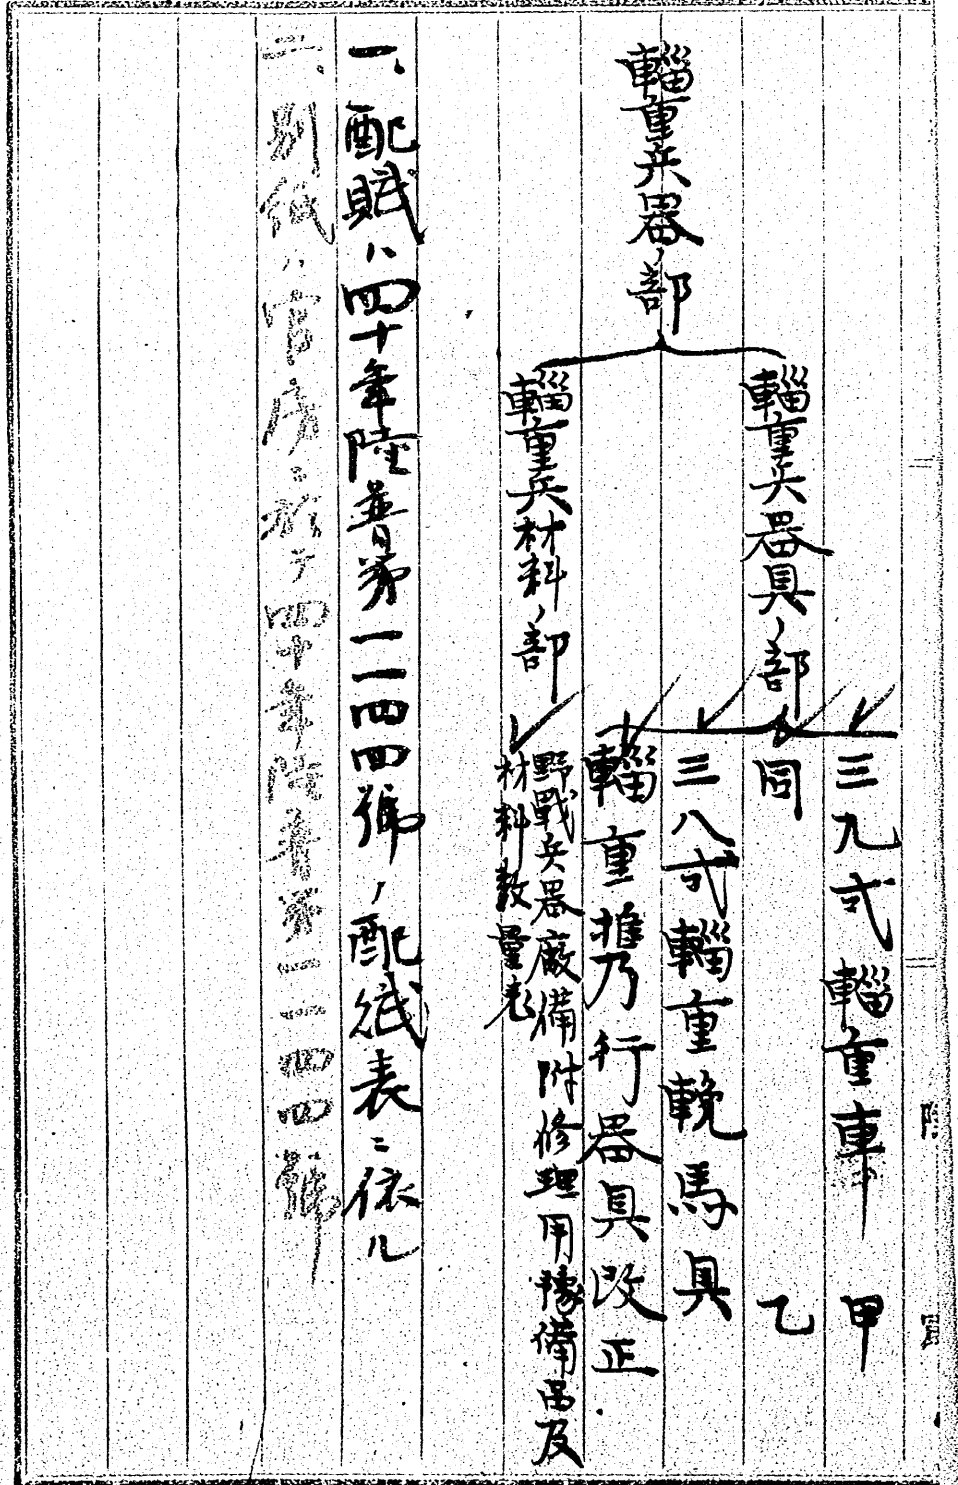 輜重兵器ノ部
輜重兵器具ノ部
三九式輜重車 甲
同 乙
三八式輜重輓馬具
輜重携行器具改正
輜重兵材料ノ部
野戰兵器廠備附修理用豫備品及
材料数量表
一、配賦ハ四十年陸普第一一四四號ノ配賦表ニ依ル
二、別紙ハ官房ニ於テ四十年陸普第一一四四號